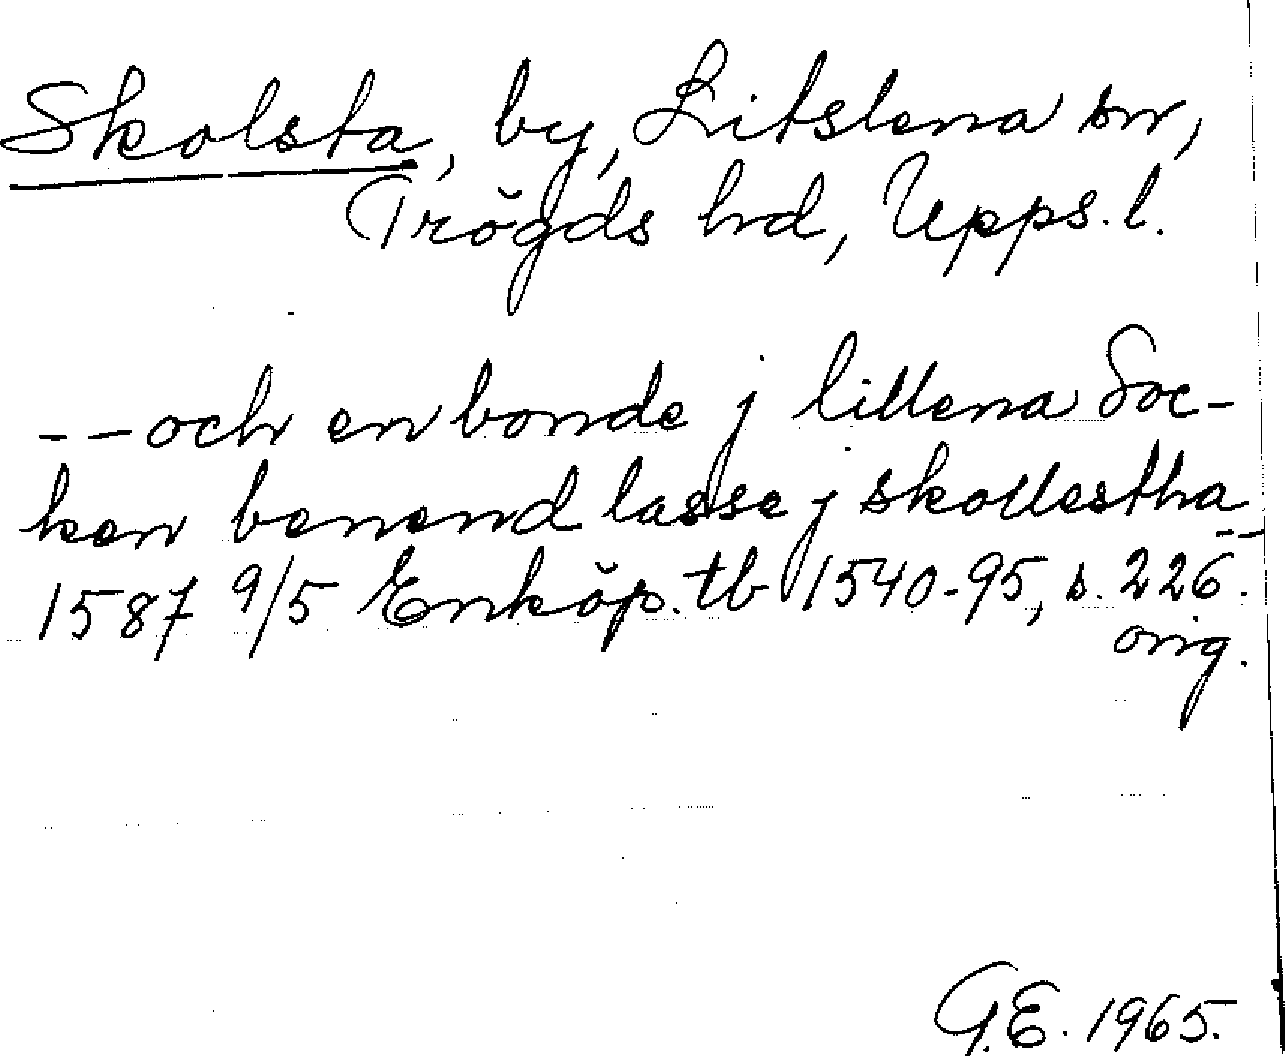 Skolsta, by, Litslena sn,
Trögds hd, Upps. l.
-- och en bonde j litlena Soc-
ken benend lasse j skollestha --
1587 9/5 Enköp. tb 1540-95, s. 226.
orig.
G.E. 1965.